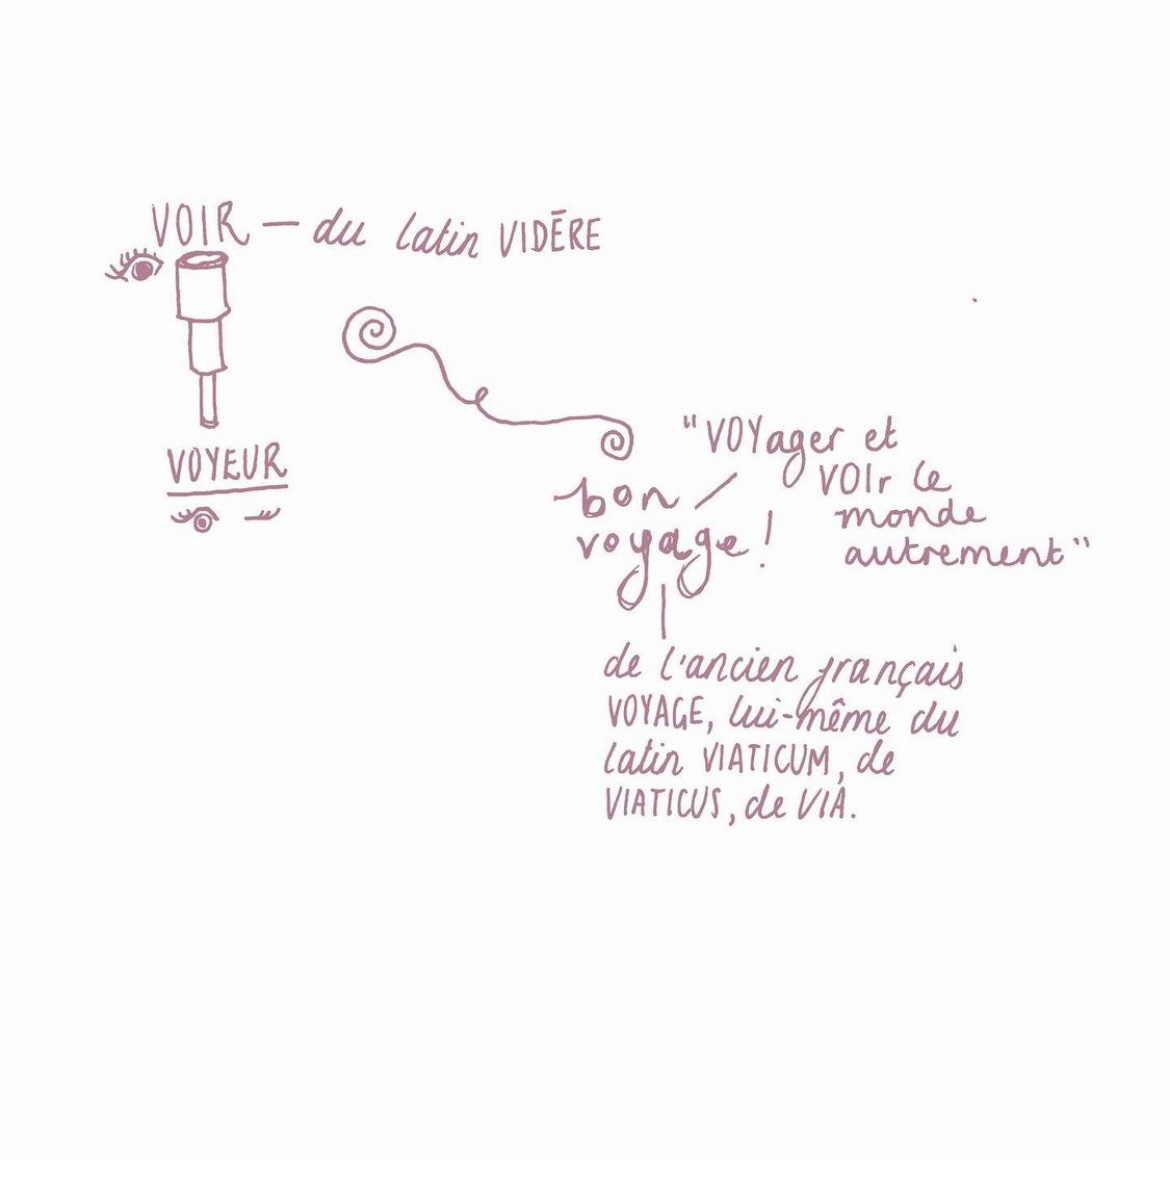 VOIR — du latin VIDĒRE
VOYEUR
"VOYager et
VOIr le
monde
autrement"
bon
voyage!
de l'ancien français
VOYAGE, lui-même du
latin VIATICUM, de
VIATICUS, de VIA.